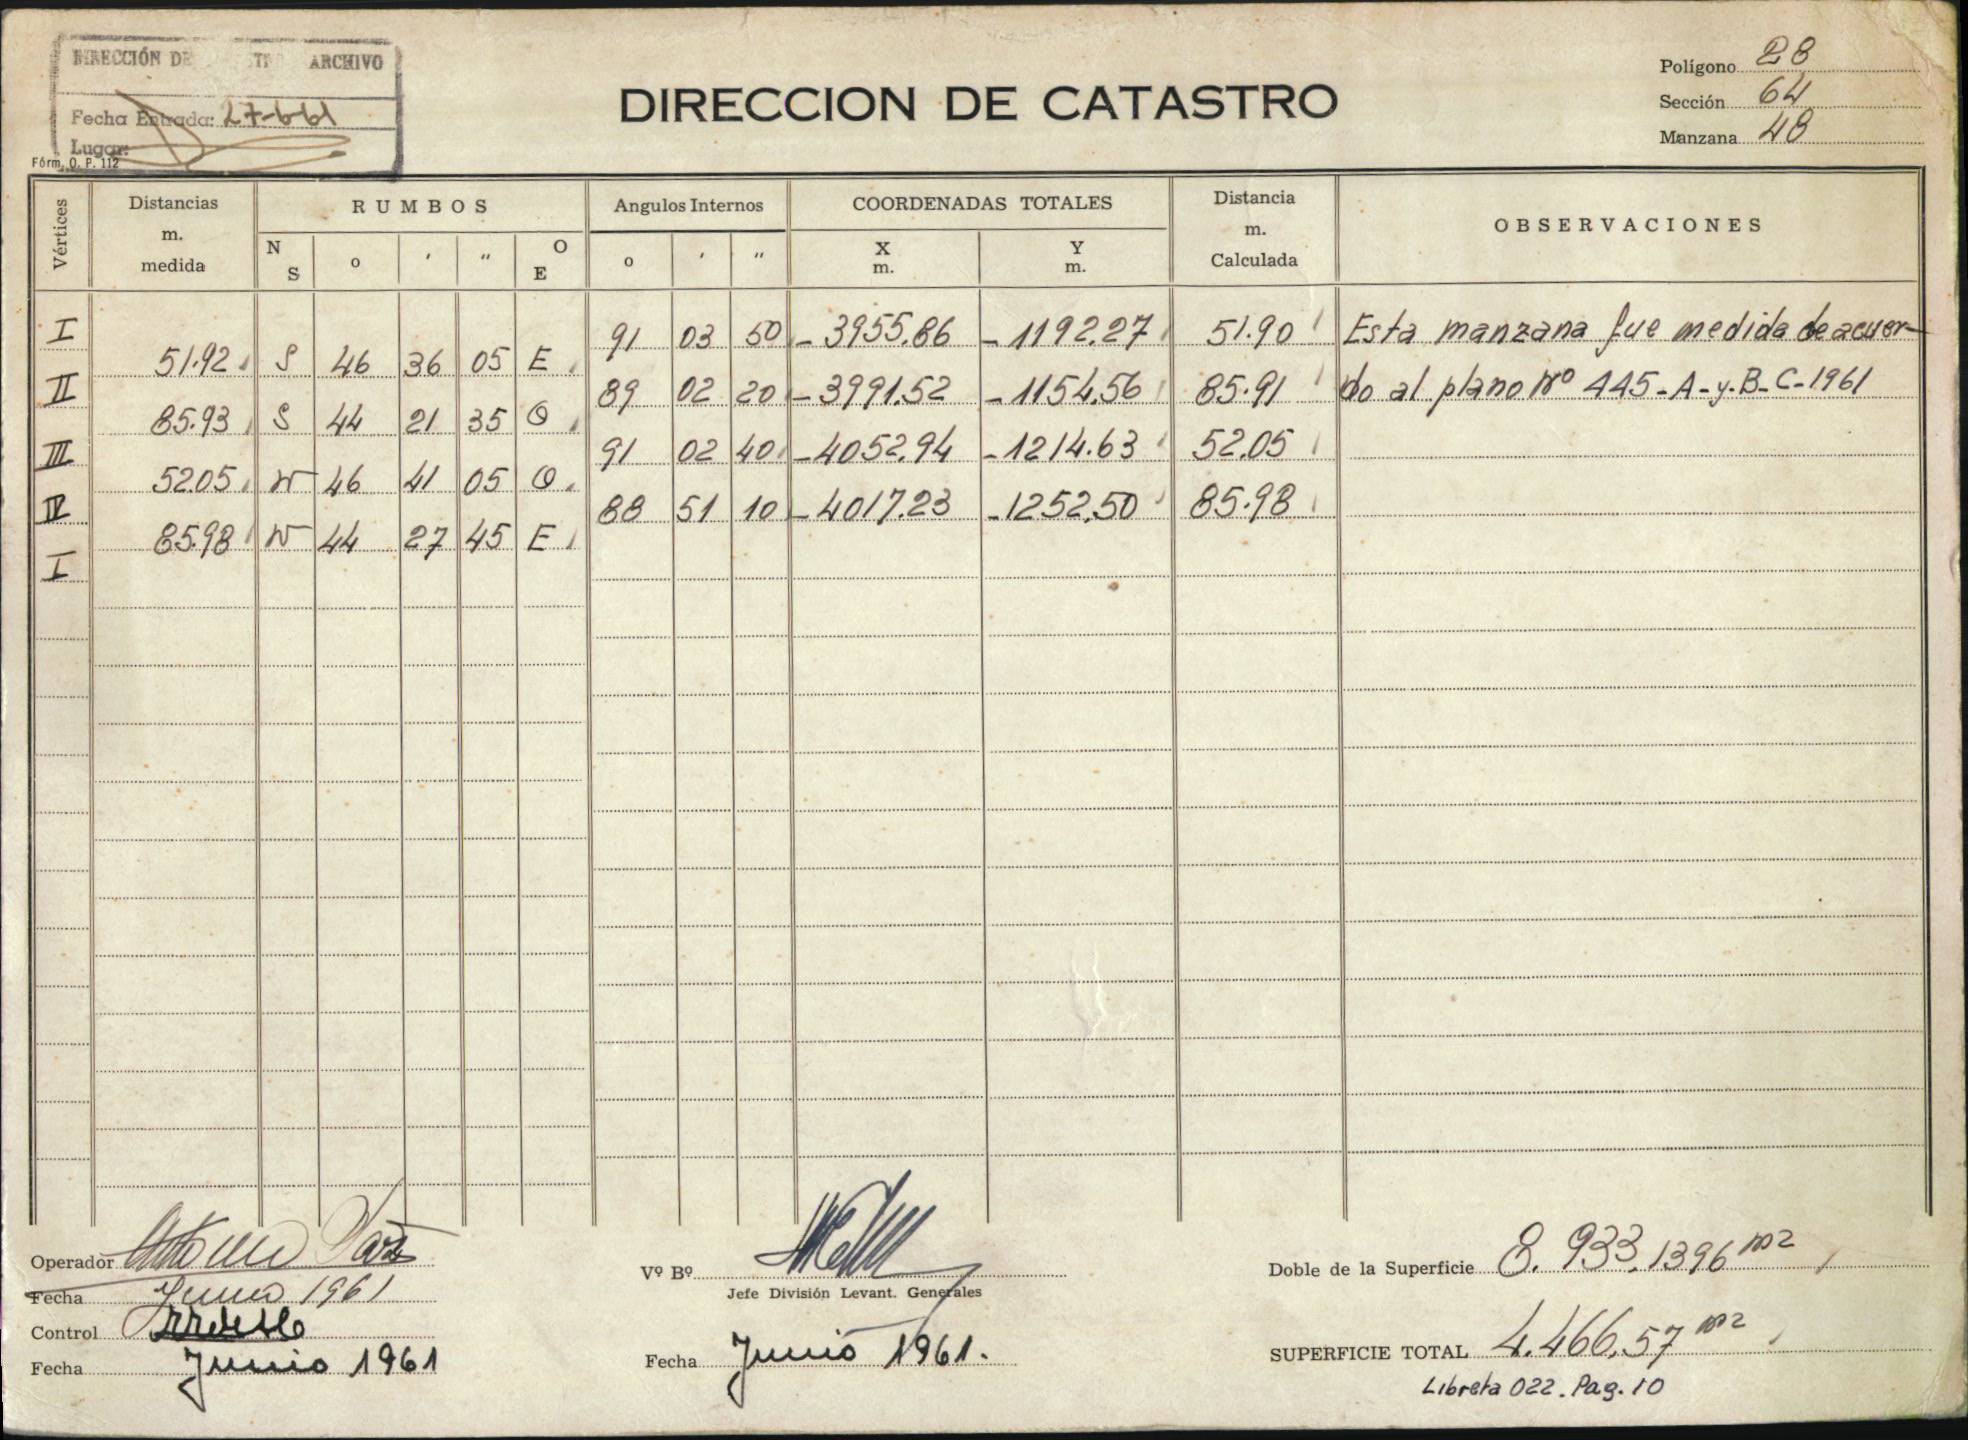 DIRECCIÓN DE ARCHIVO
Fecha Entrada: 27-6-61
Lugar:
Fórm. O. P. 112
DIRECCION DE CATASTRO
Polígono 28
Sección 64
Manzana 48
Vértices
Distancias m. medida
RUMBOS
N S o ' " O E
Angulos Internos
o ' "
COORDENADAS TOTALES
X m. Y m.
Distancia m. Calculada
OBSERVACIONES
I 91 03 50 -3955.86 -1192.27 51.90 Esta manzana fue medida de acuer-
51.92 S 46 36 05 E
II 89 02 20 -3991.52 -1154.56 85.91 do al plano Nº 445-A-y-B-C-1961
85.93 S 44 21 35 O
III 91 02 40 -4052.94 -1214.63 52.05
52.05 N 46 41 05 O
IV 88 51 10 -4017.23 -1252.50 85.98
85.98 N 44 27 45 E
I
Operador
Fecha Junio 1961
Control
Fecha Junio 1961
Vº Bº
Jefe División Levant. Generales
Fecha Junio 1961.
Doble de la Superficie 8.933,1396 m2
SUPERFICIE TOTAL 4.466,57 m2
Libreta 022. Pag. 10